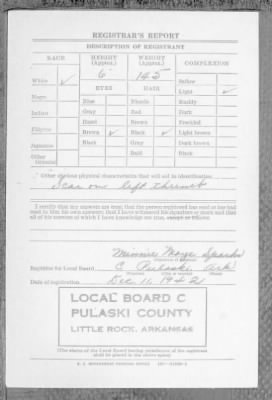 REGISTRAR'S REPORT
DESCRIPTION OF REGISTRANT
RACE HEIGHT (Approx.) WEIGHT (Approx.) COMPLEXION
6 145
White ✓ Sallow
EYES HAIR Light ✓
Negro Blue Blonde Ruddy
Gray Red Dark
Indian Hazel Brown Freckled
Filipino Brown ✓ Black ✓ Light brown
Japanese Black Gray Dark brown
Other Oriental Bald Black
Other obvious physical characteristics that will aid in identification
Scar on left thumb
I certify that my answers are true; that the person registered has read or has had
read to him his own answers; that I have witnessed his signature or mark and that
all of his answers of which I have knowledge are true, except
Minnie Sparks
Registrar for Local Board C Pulaski Ark
Date of registration Dec 11 1942
LOCAL BOARD C
PULASKI COUNTY
LITTLE ROCK, ARKANSAS
(The stamp of the Local Board having jurisdiction of the registrant
shall be placed in the above space)
U. S. GOVERNMENT PRINTING OFFICE